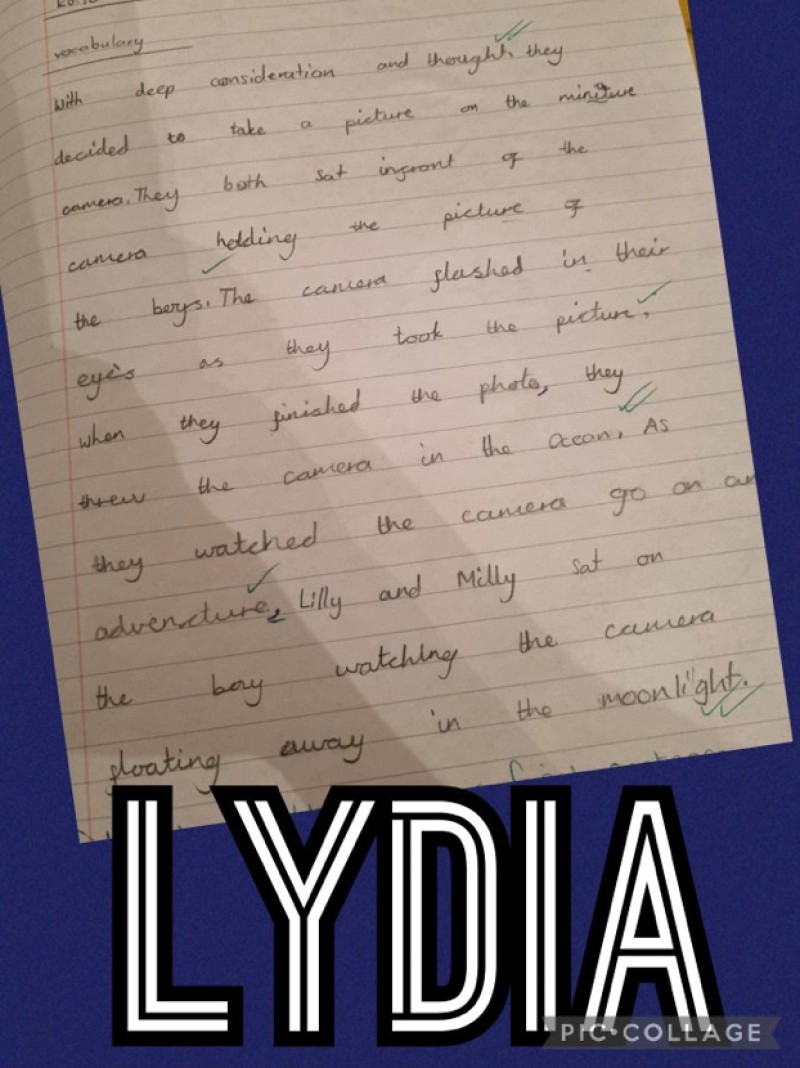 vocabulary
With deep consideration and thought, they
decided to take a picture on the
camera. They both sat infront of the
camera holding the picture of
the berys. The camera flashed in their
eye's as they took the picture,
when they finished the photo, they
threw the camera in the ocean. As
they watched the camera go on an
adventure, Lilly and Milly sat on
the bery watching the camera
floating away in the moonlight.
LYDIA
PIC•COLLAGE